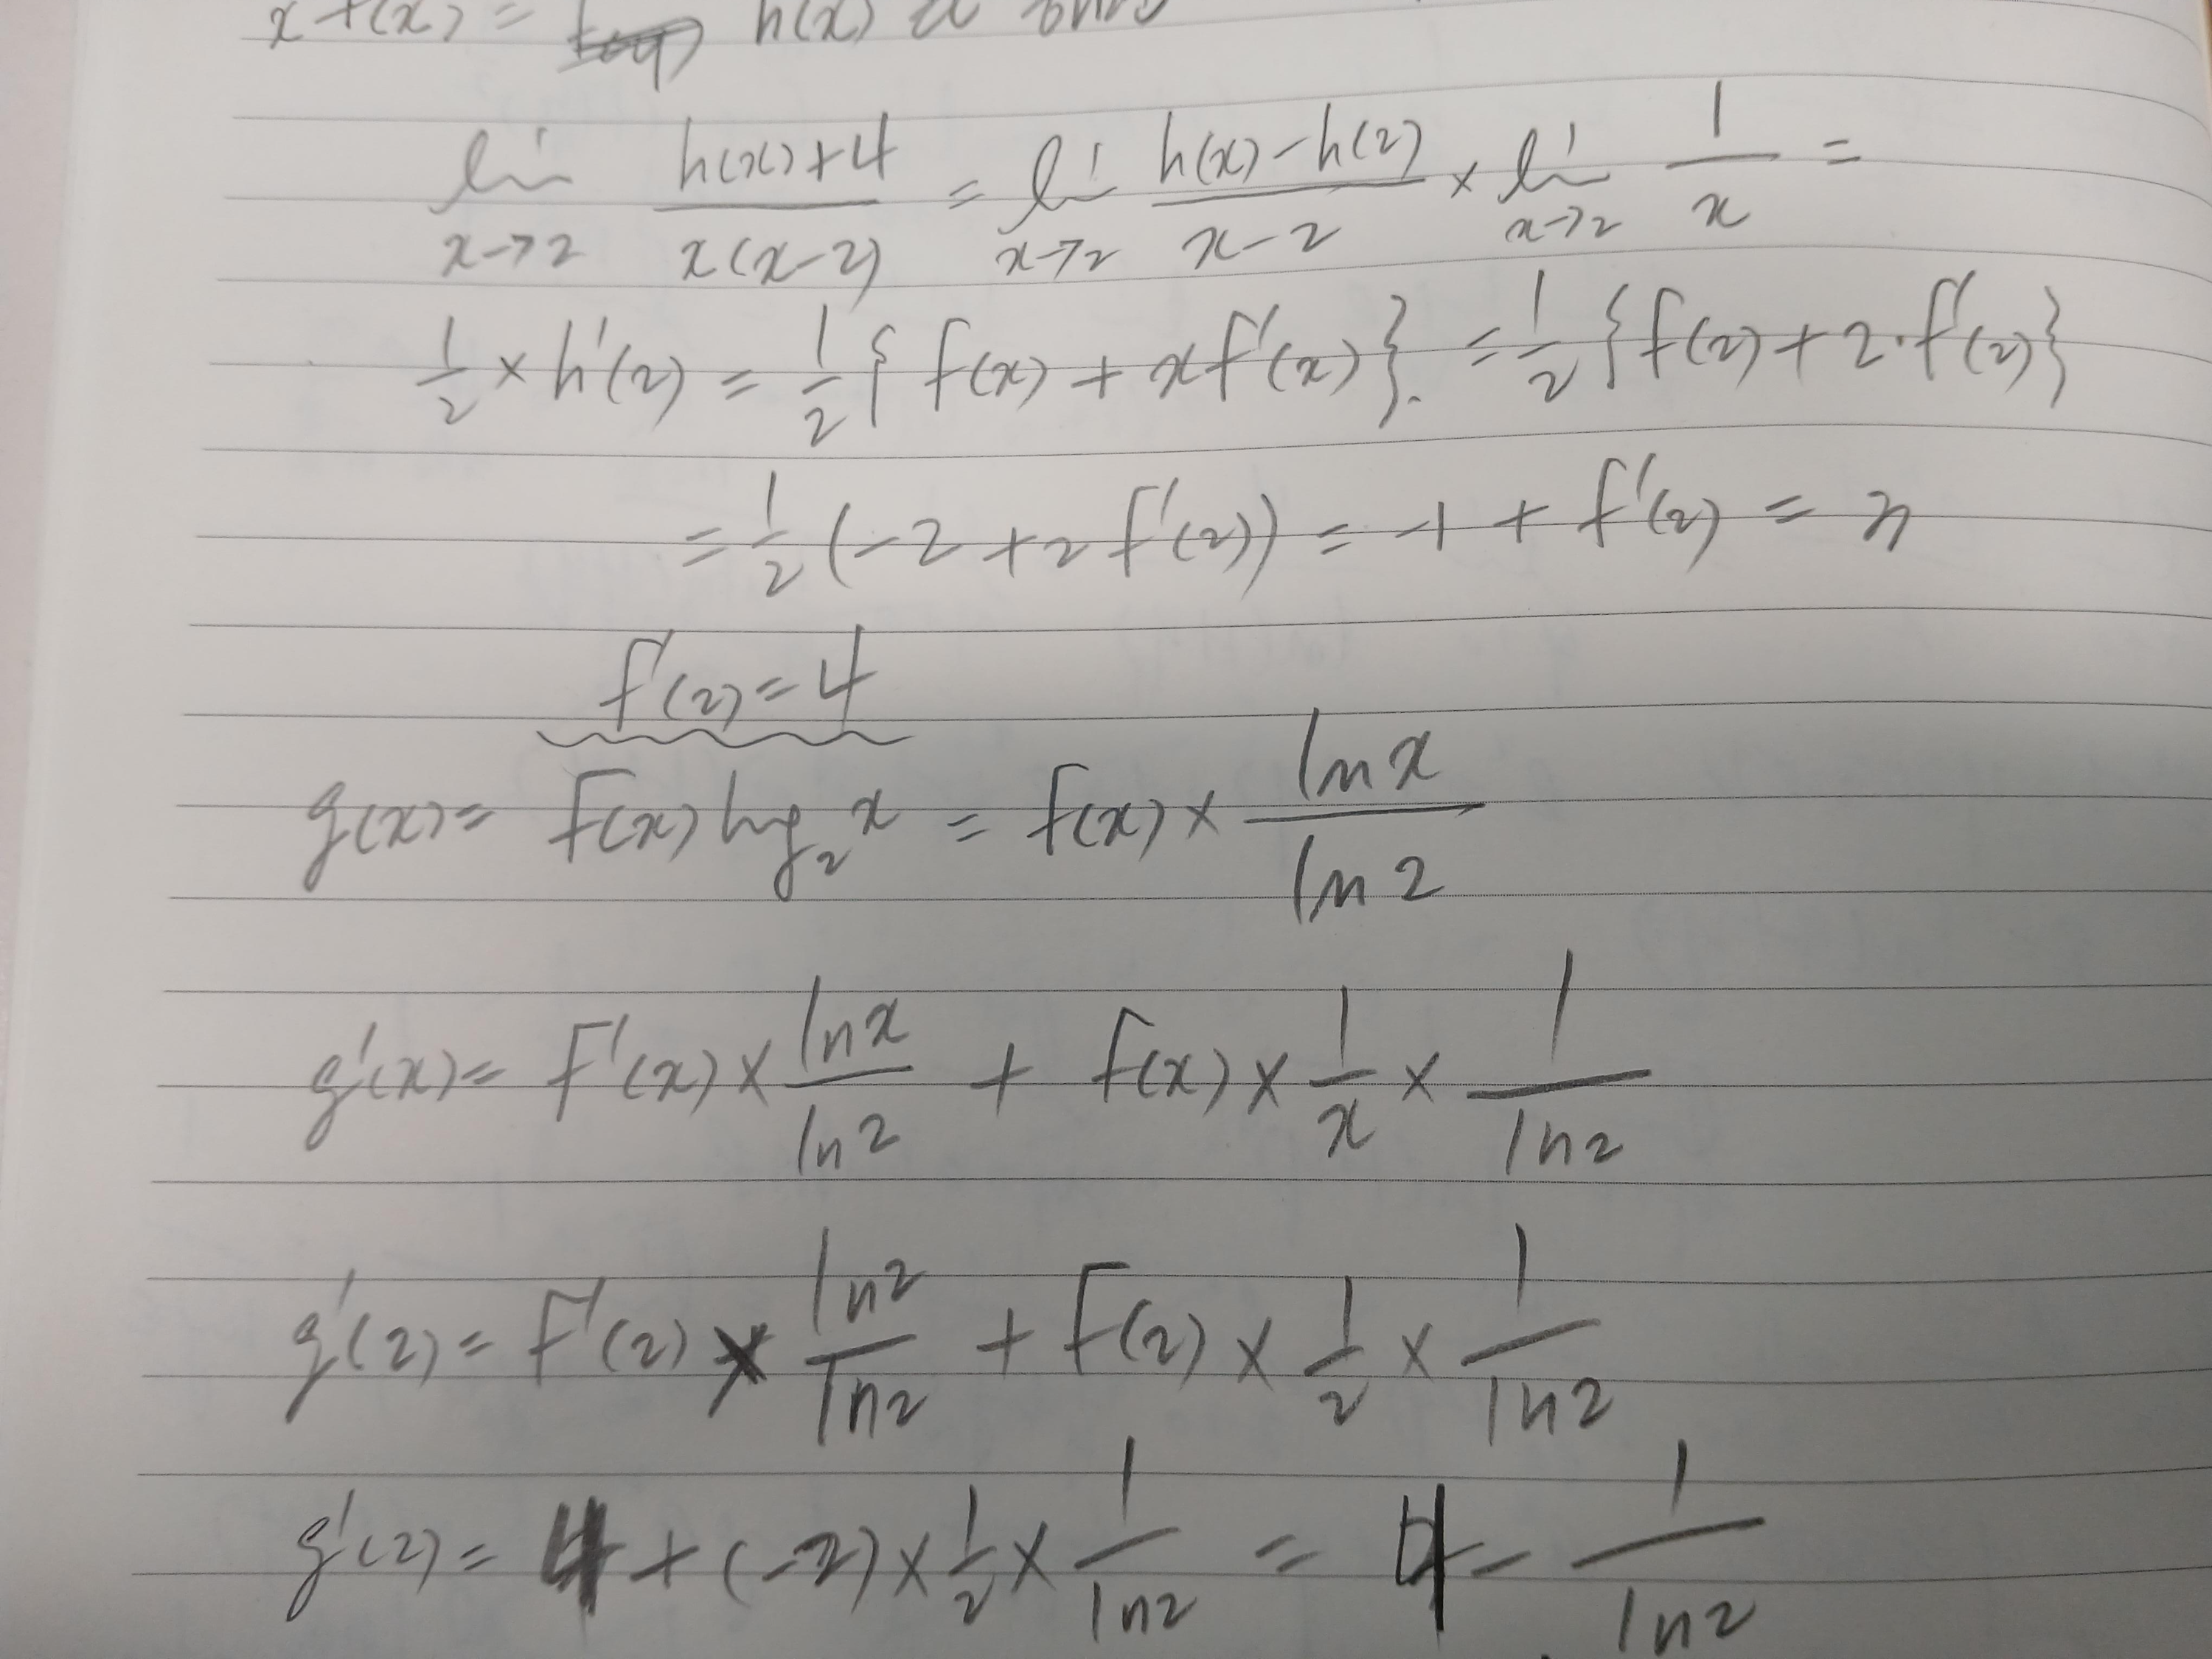 x f(x) = h(x)
lim x→2 (h(x)+4)/(x(x-2)) = lim x→2 (h(x)-h(2))/(x-2) × lim x→2 1/x =
1/2 × h'(2) = 1/2 { f(x) + x f'(x) }. = 1/2 { f(2) + 2·f'(2) }
= 1/2 (-2 + 2 f'(2)) = -1 + f'(2) = 3
f'(2) = 4
g(x) = f(x) log₂ x = f(x) × ln x / ln 2
g'(x) = f'(x) × ln x / ln 2 + f(x) × 1/x × 1/ln 2
g'(2) = f'(2) × ln 2 / ln 2 + f(2) × 1/2 × 1/ln 2
g'(2) = 4 + (-2) × 1/2 × 1/ln 2 = 4 - 1/ln 2